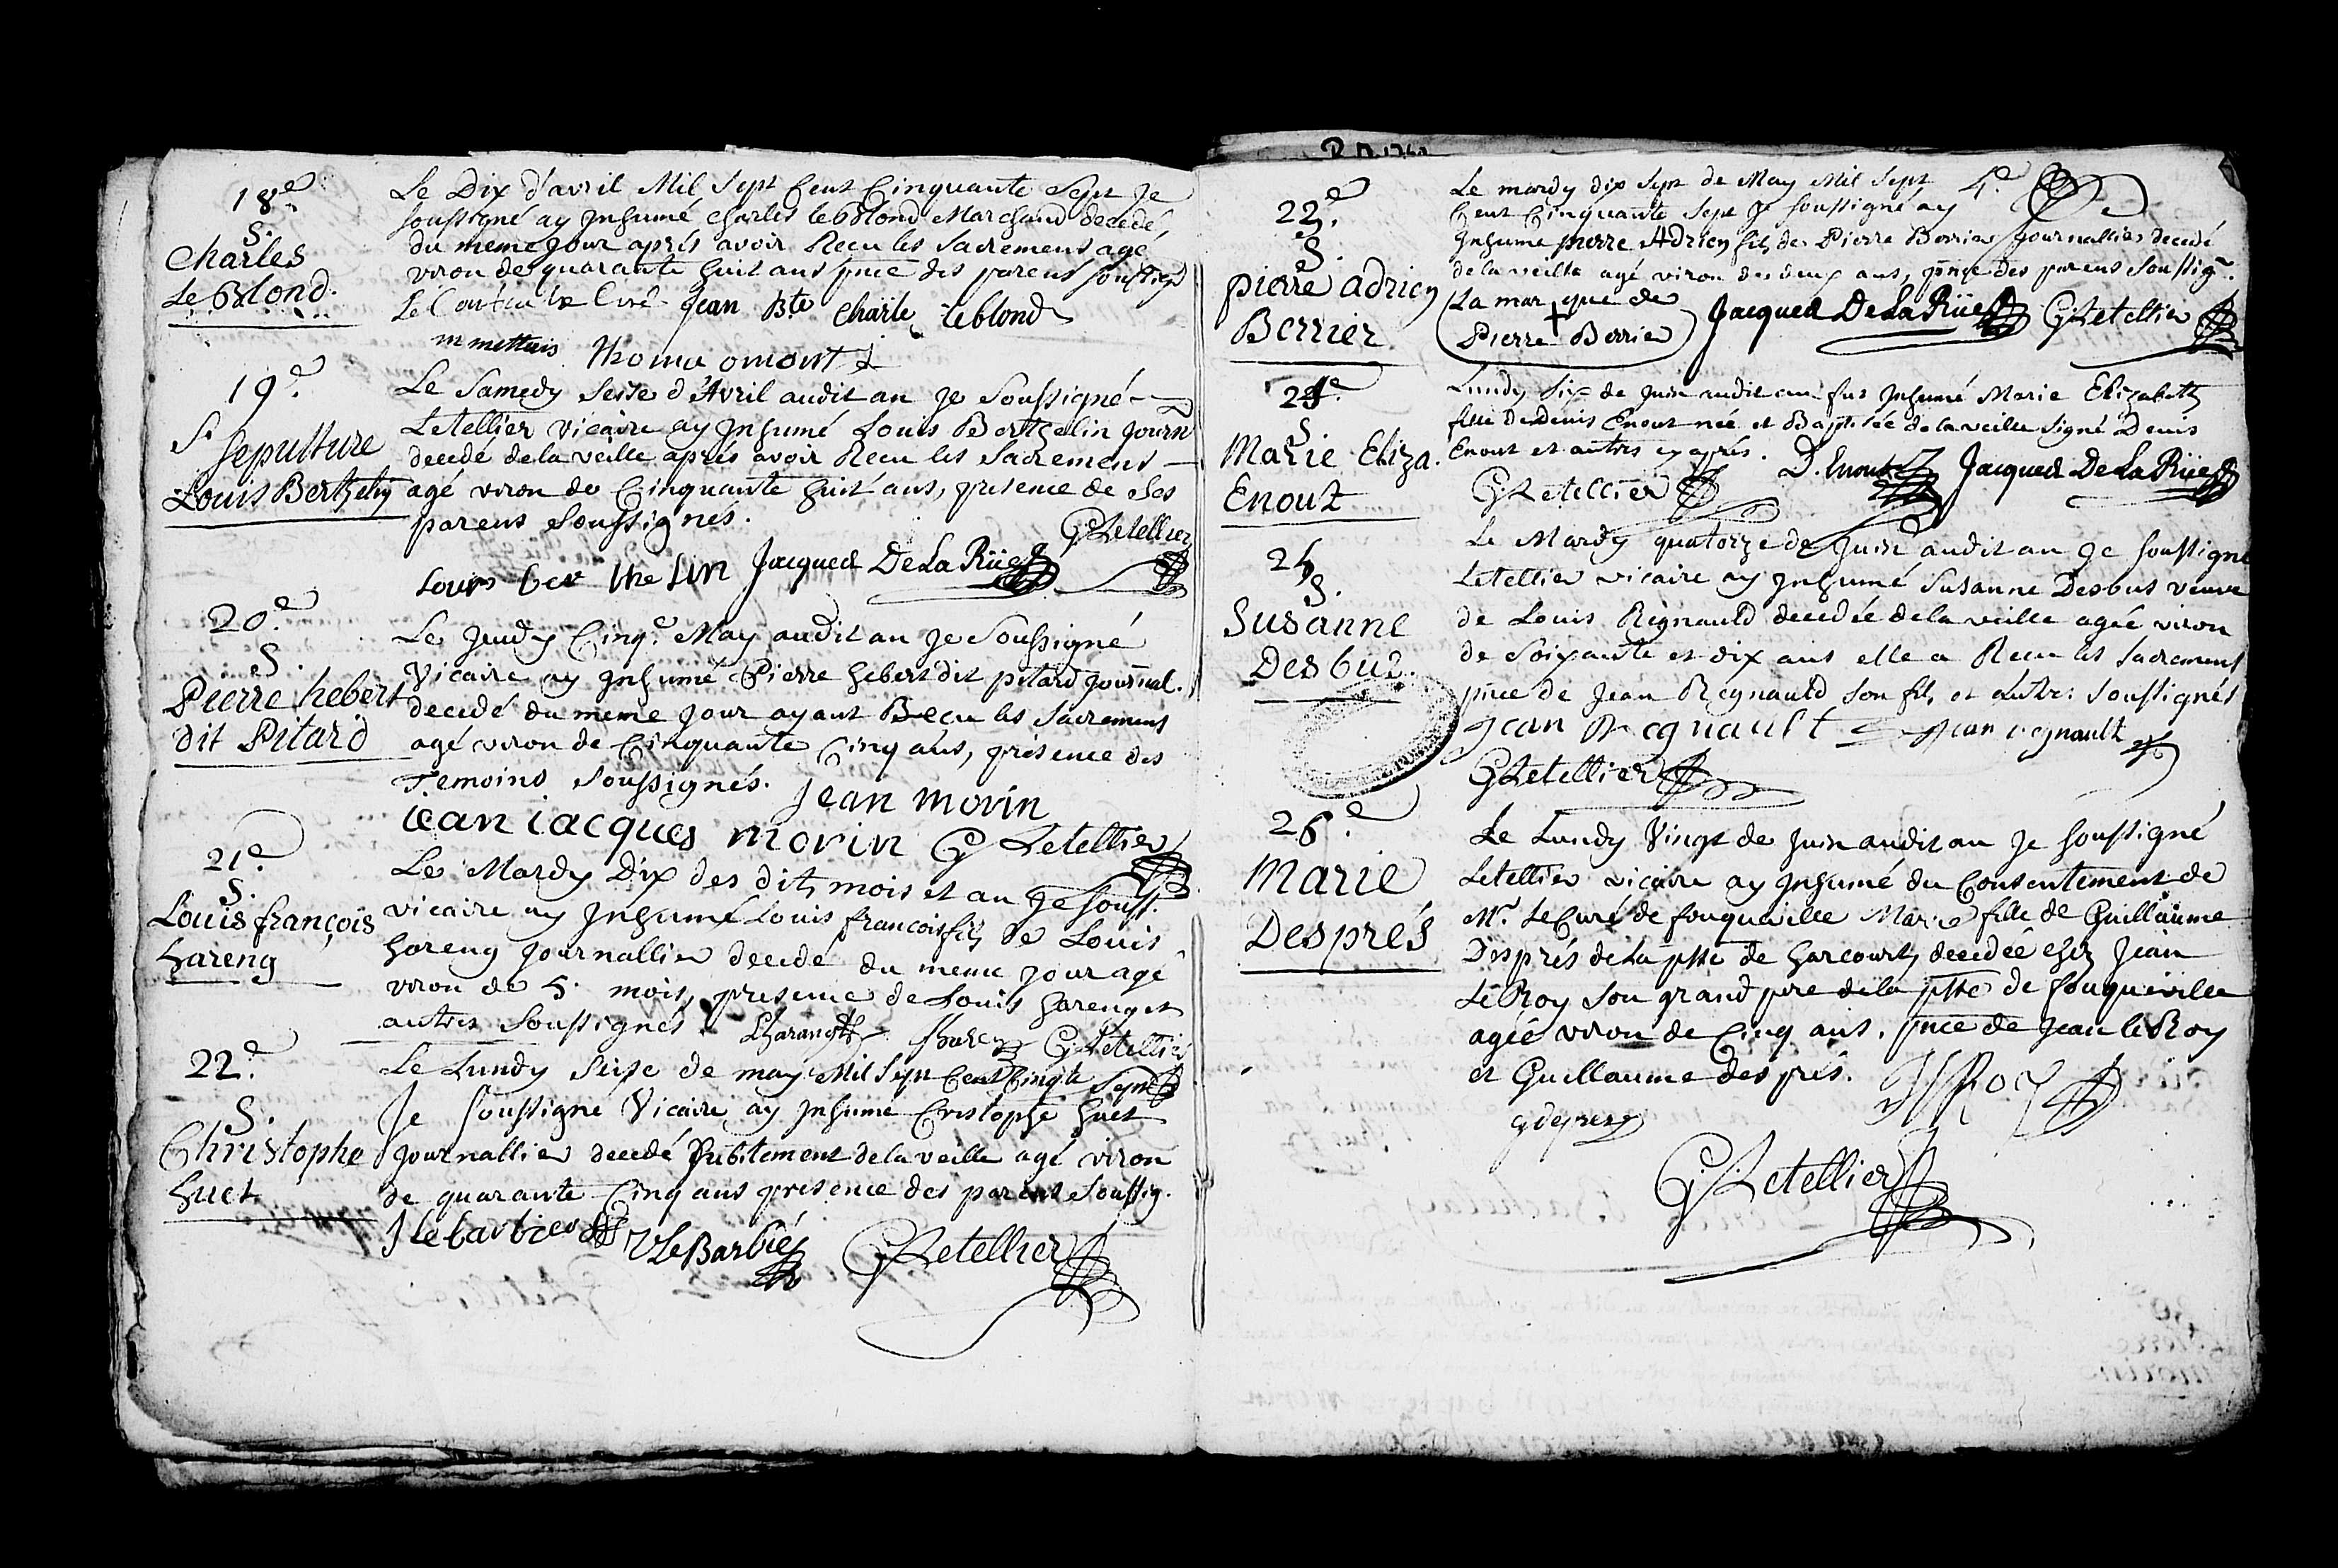 18.e
S.
Charles
Le Blond.
Le Dix d'avril Mil Sept Cent Cinquante Sept je
soussigné ay Inhumé Charles le Blond Marchand decedé,
du meme jour aprés avoir Recu les Sacremens agé
viron de quarante huit ans pnce des parens soussign
Jean Bte Charle leblond
Thoma omont
19.e
Sepulture
Louis Berthelin
Le Samedy Seise d'Avril audit an je Soussigné
Letellier Vicaire ay Inhumé Louis Berthelin Journ
decedé de la veille aprés avoir Recu les Sacremens
agé viron de Cinquante huit ans, presence de Ses
parens Soussignés.
G Letellier
Louis ber the lin Jacques De La Rüe
20.e
S.
Pierre hebert
dit Pitard
Le Jeudy Cinq.e May audit an je Soussigné
Vicaire ay Inhumé Pierre hebert dit pitard Journal.
decedé du meme jour ayant Recu les Sacremens
agé viron de Cinquante Cinq ans, présence des
Temoins Soussignés.
Jean morin
iean iacques morin G Letellier
21.e
S.
Louis françois
hareng
Le Mardy Dix des dits mois et an je Souss.
vicaire ay Inhumé Louis francois fils de Louis
hareng Journallier decedé du meme jour agé
viron de 5. mois, presence de Louis hareng et
autres Soussignés.
Lharang G Letellier
22.e
S.
Christophe
huet
Le Lundy Seise de may Mil Sept Cent Cinqte Sept
Je Soussigné Vicaire ay Inhumé Cristophe huet
Journallier decedé Subitement de la veille agé viron
de quarante Cinq ans presence des parens Soussig.
J le barbier V Le Barbié G Letellier
23.e
S.
pierre adrien
Berrier
Le mardy dix Sept de May Mil Sept
Cent Cinquante Sept je soussigné ay
Inhumé pierre Adrien fils de Pierre Berrier Journallier decedé
de la veille agé viron de deux ans, pnce des parens Soussig.
La mar que de
Pierre + Berrier
Jacques De La Rüe G Letellier
24.e
S
Marie Eliza.
Enout
Lundy Six de Juin audit an fut Inhumé Marie Elizabeth
fille de Denis Enout née et Baptisée de la veille Signé Denis
Enout et autres cy aprés.
D. Enout Jacques De La Rüe
G Letellier
25
S.
Susanne
Desbus.
Le Mardy quatorze de Juin audit an je soussigné
Letellier vicaire ay Inhumé Susanne Desbus veuve
de Louis Regnauld decedée de la veille agée viron
de Soixante et dix ans elle a Recu les Sacremens
pnce de Jean Regnauld son fils et autres soussignés
Jean Regnault Jean regnault
G Letellier
26.e
Marie
Després
Le Lundy Vingt de Juin audit an je soussigné
Letellier vicaire ay Inhumé du Consentement de
Mr. Le Curé de fouqueville Marie fille de Guillaume
Després de la psse de harcourt, decedée chez Jean
Le Roy son grand pere de la psse de fouqueville
agée viron de Cinq ans. pnce de Jean le Roy
et Guillaume després.
gdeprez
G Letellier